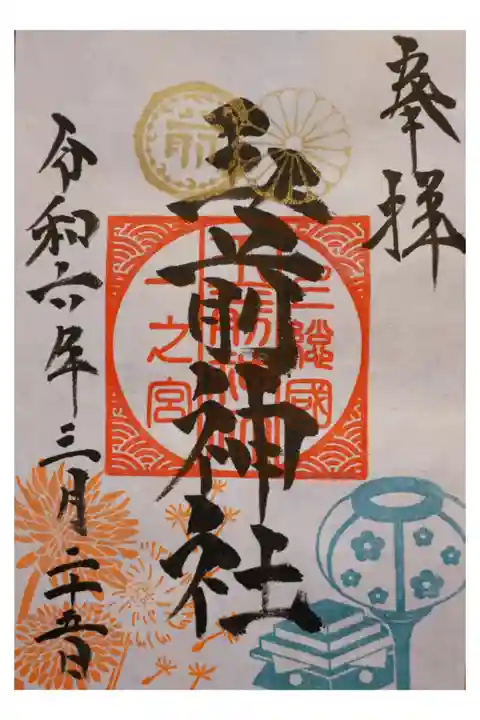 奉拝
玉前神社
上總國
一之宮
令和六年三月二十五日